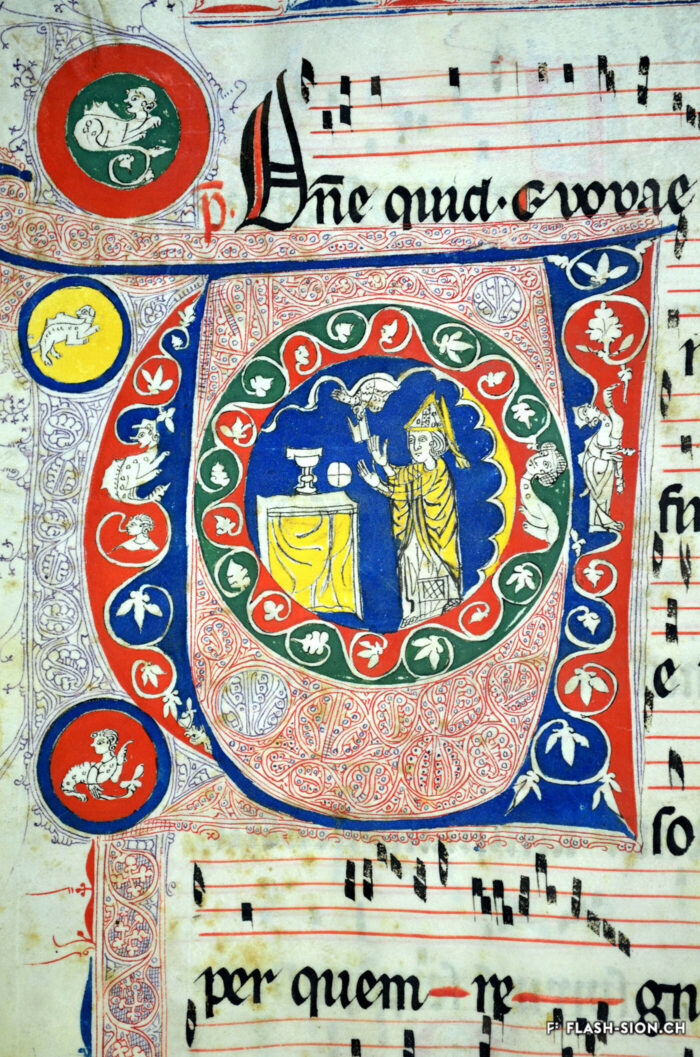 p. Añe quid · evovae
r
fi
e
e
so
per quem re gn
F: FLASH-SION.CH